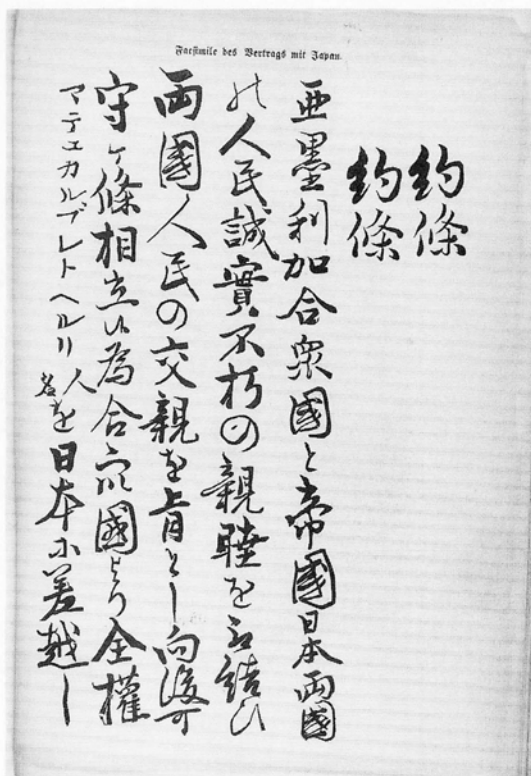 Facsimile des Vertrags mit Japan.
約條
約條
亜墨利加合衆國と帝國日本両國
の人民誠實不朽の親睦を取結ひ
両國人民の交親を旨とし向後可
守ヶ條相立候為合衆國より全權
マテユカルブレトヘルリ人名を日本に差越し